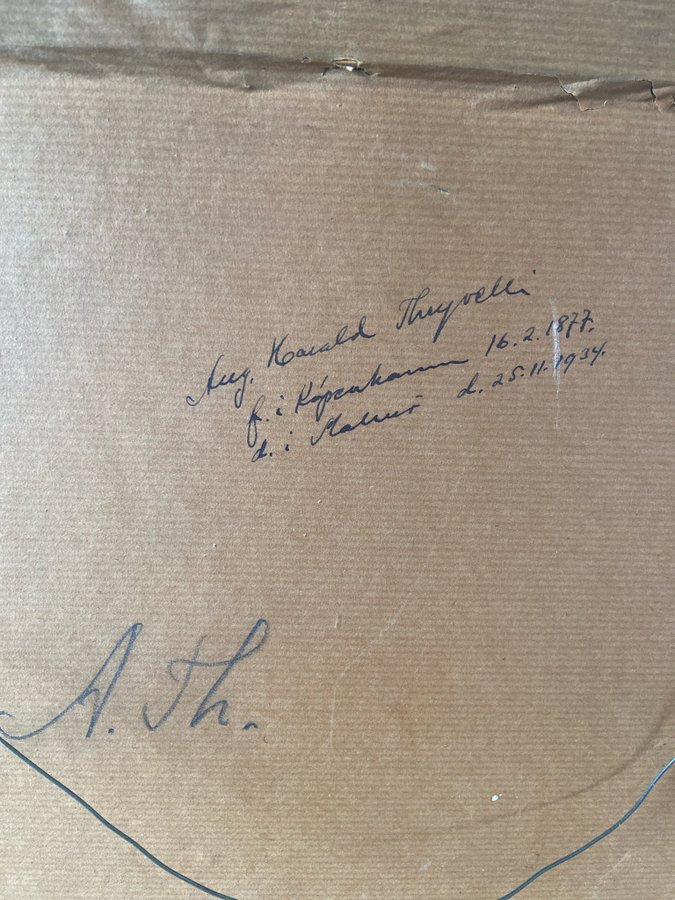 Aug. Harald Theyvelli
f. i Köpenhamn 16.2.1877.
d. i Malmö d. 25.11.1934.
A. Th.